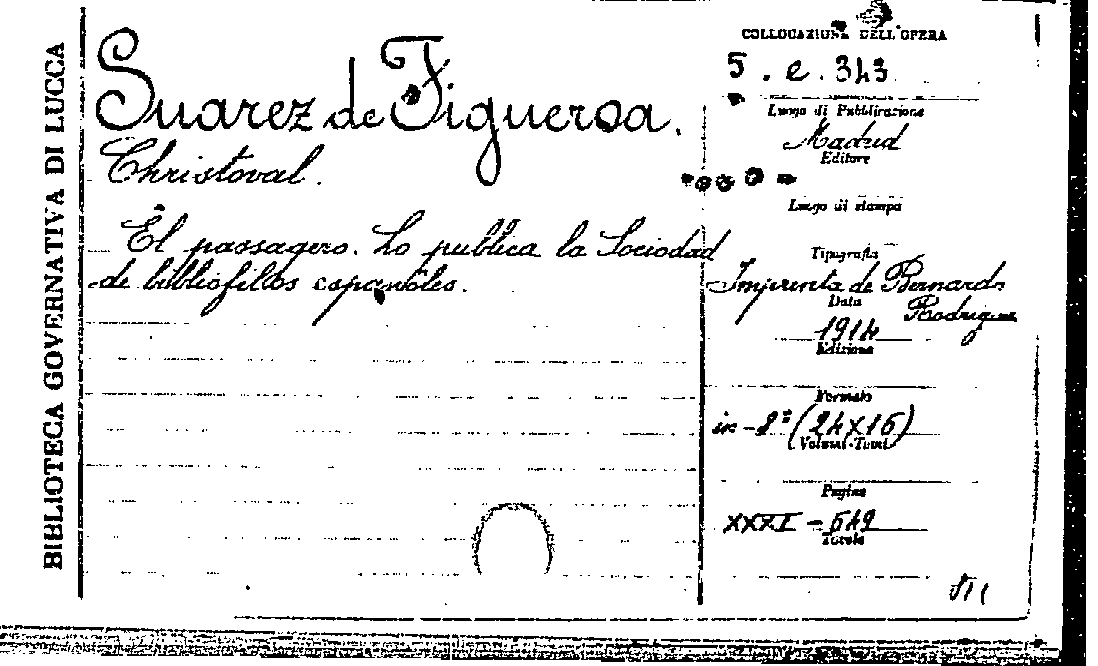 BIBLIOTECA GOVERNATIVA DI LUCCA
Suarez de Figueroa.
Christoval.
El passagero. Lo publica la Sociedad
de bibliofilos españoles.
COLLOCAZIONE DELL'OPERA
5. e. 343
Luogo di Pubblicazione
Madrid
Editore
Luogo di stampa
Tipografia
Imprenta de Bernardo
Rodriguez
Data
1914
Edizione
Formato
in-8º (24x16)
Volumi-Tomi
Pagine
XXXI - 649
Tavole